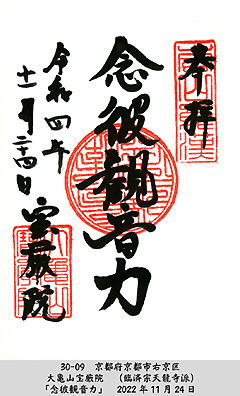 奉拝
念彼観音力
令和四年
十一月二十四日
宝厳院
30-09 京都府京都市右京区
大亀山宝厳院 (臨済宗天龍寺派)
「念彼観音力」 2022年11月24日